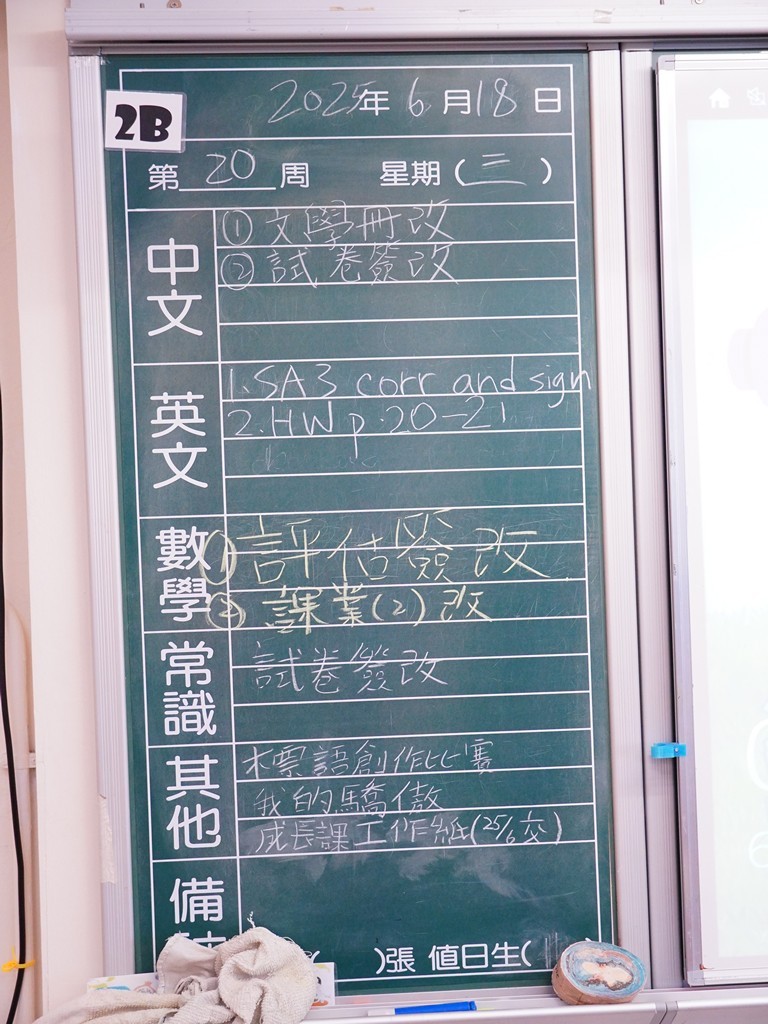 2B
2025年6月18日
第20周 星期(三)
中文
①文學冊改
②試卷簽改
英文
1. SA3 corr and sign
2. HW p.20-21
數學
①評估簽改
②課業(2)改
常識
試卷簽改
其他
標語創作比賽
我的驕傲
成長課工作紙(25/6交)
備
)張 值日生(